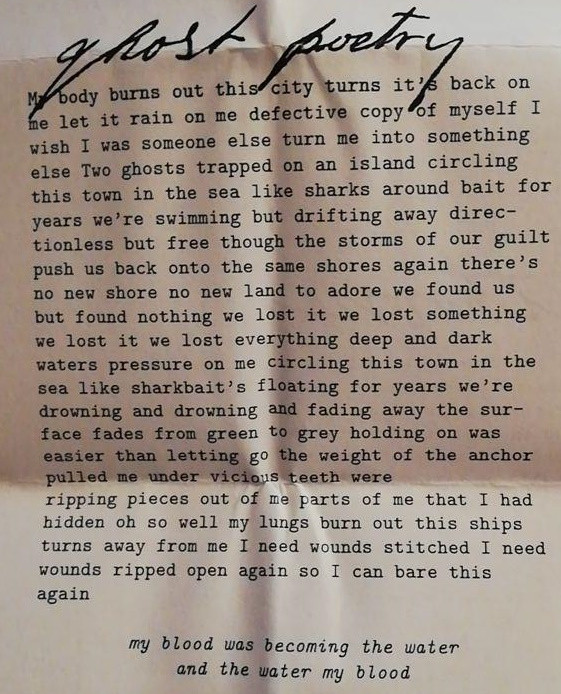 ghost poetry
My body burns out this city turns it's back on
me let it rain on me defective copy of myself I
wish I was someone else turn me into something
else Two ghosts trapped on an island circling
this town in the sea like sharks around bait for
years we're swimming but drifting away direc-
tionless but free though the storms of our guilt
push us back onto the same shores again there's
no new shore no new land to adore we found us
but found nothing we lost it we lost something
we lost it we lost everything deep and dark
waters pressure on me circling this town in the
sea like sharkbait's floating for years we're
drowning and drowning and fading away the sur-
face fades from green to grey holding on was
easier than letting go the weight of the anchor
pulled me under vicious teeth were
ripping pieces out of me parts of me that I had
hidden oh so well my lungs burn out this ships
turns away from me I need wounds stitched I need
wounds ripped open again so I can bare this
again
my blood was becoming the water
and the water my blood